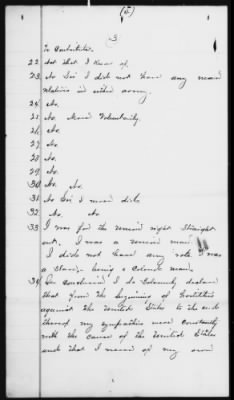 (6)
3
To Contribute.
22 Not that I know of.
23 No Sir I did not have any near
relatives in either army.
24 No.
25 No. Never Voluntarily.
26 No.
27 No.
28 No.
29 No.
30 No. No.
31 No Sir I never did.
32 No. No.
33 I was for the union right straight
out. I was a union man.
I did not have any vote I was
a Slave - being a colored man.
34 In conclusion I do Solemnly declare
that from the beginning of hostilities
against the United States to the end
thereof my sympathies were constantly
with the cause of the United States
and that I never of my own